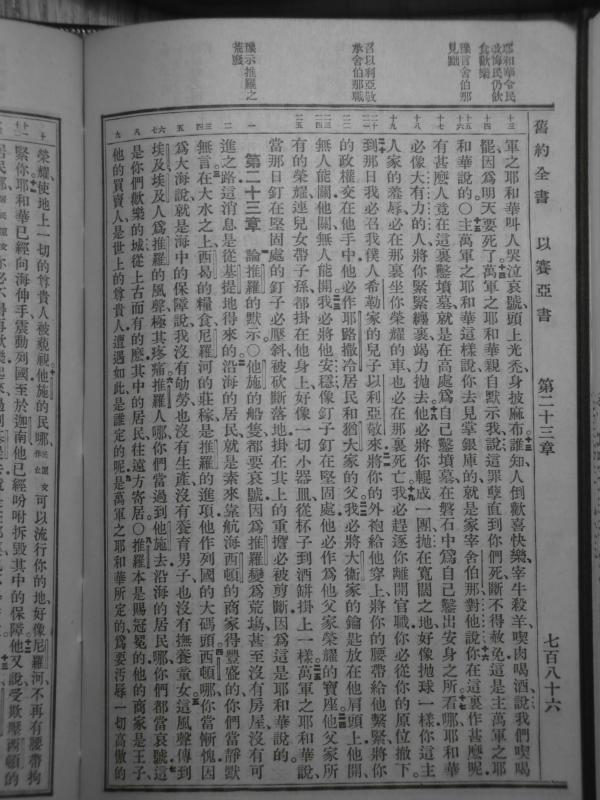 舊約全書 以賽亞書 第二十三章 七百八十六
耶和華令民
見黜
召以利亞敬
承舍伯那職
預示推羅之
軍之耶和華叫人哭泣哀號頭上光禿身披麻布誰知人倒歡喜快樂宰牛殺羊喫肉喝酒說我們喫喝
罷因爲明天要死了萬軍之耶和華親自默示我說這罪孽直到你們死斷不得赦免這是主萬軍之耶
和華說的〇主萬軍之耶和華這樣說你去見掌銀庫的就是家宰舍伯那對他說你在這裏作甚麽呢
有甚麽人竟在這裏鑿墳墓就是在高處爲自己鑿墳墓在磐石中爲自己鑿出安身之所看哪耶和華
必像大有力的人將你緊緊纏裹竭力抛去他必將你輥成一團抛在寬闊之地好像抛球一樣你這主
人家的羞辱必在那裏坐你榮耀的車也必在那裏死亡我必趕逐你離開官職你必從你的原位撤下
到那日我必召我僕人希勒家的兒子以利亞敬來將你的外袍給他穿上將你的腰帶給他繫緊將你
的政權交在他手中他必作耶路撒冷居民和猶大家的父我必將大衛家的鑰匙放在他肩頭上他開
無人能關他關無人能開我必將他安穩像釘子釘在堅固處他必作爲他父家榮耀的寶座他父家所
有的榮耀連兒女帶子孫都掛在他身上好像一切小器皿從杯子到酒餅掛上一樣萬軍之耶和華說
當那日釘在堅固處的釘子必壓斜被砍斷落地掛在其上的重擔必被剪斷因爲這是耶和華說的
第二十三章 論推羅的默示〇他施的船隻都要哀號因爲推羅變爲荒場甚至沒有房屋沒有可
進之路這消息是從基提地得來的沿海的居民就是素來靠航海西頓的商家得豐盛的你們當靜默
無言在大水之上西曷的糧食尼羅河的莊稼是推羅的進項他作列國的大碼頭西頓哪你當慚愧因
爲大海說就是海中的保障說我沒有劬勞也沒有生產沒有養育男子也沒有撫養童女這風聲傳到
埃及埃及人爲推羅的風聲極其疼痛推羅人哪你們當過到他施去沿海的居民哪你們都當哀號這
是你們歡樂的城從上古而有的麽其中的居民往遠方寄居〇推羅本是賜冠冕的他的商家是王子
他的買賣人是世上的尊貴人遭遇如此是誰定的呢是萬軍之耶和華所定的爲要污辱一切高傲的
榮耀使地上一切的尊貴人被藐視他施的民哪可以流行你的地好像尼羅河不再有腰帶拘
緊你耶和華已經向海伸手震動列國至於迦南他已經吩咐拆毀其中的保障他又說受欺壓西頓的